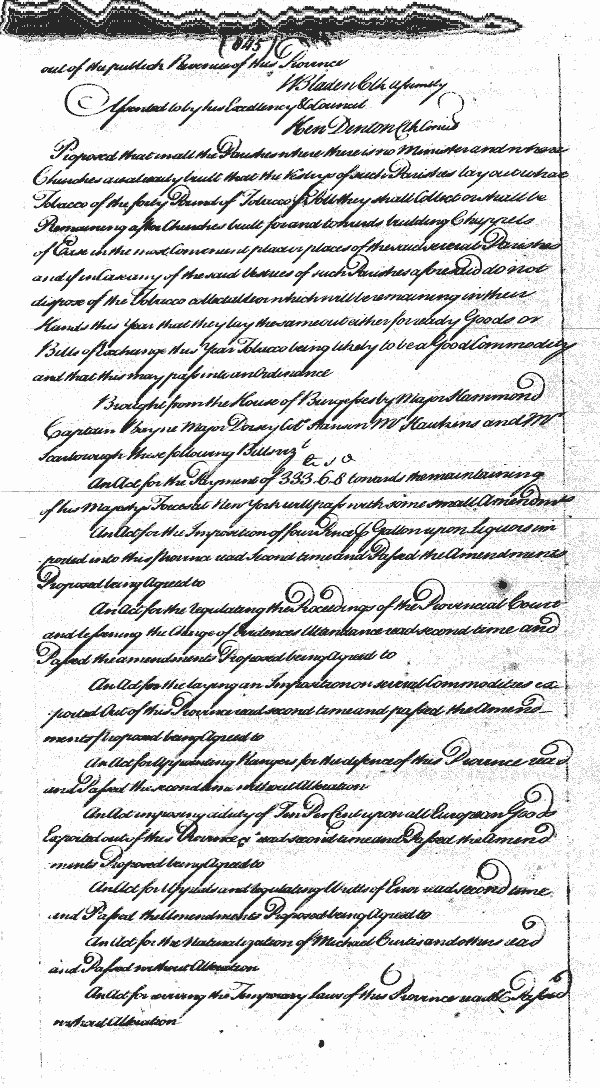 (845)
out of the publick Revenue of this Province
W Bladen Clk Assembly
Assented to by his Excellency & Council
Hen Denton Clk Concil
Proposed that in all the Parishes where there is no Minister and where
Churches are already built that the Vestrys of such Parishes lay out what
Tobacco of the forty Pound of Tobacco p Poll they shall Collect or shall be
Remaining after Churches built for and towards building Chappels
of Ease in the most Convenient place or places of the said several Parishes
and if in Case any of the said Vestries of such Parishes aforesaid do not
dispose of the Tobacco allready collected or which will be remaining in their
Hands this Year that they lay the same out either for ready Goods or
Bills of Exchange this Year Tobacco being likely to be a Good Commodity
and that this may pass into an Ordinance
Brought from the House of Burgesses by Major Hammond
Captain Wayne Major Dorsey Colo Hanson Mr Hawkins and Mr
Scarborough these following Bills vizt
£ s d
An Act for the Payment of 333.6.8 towards the maintaining
of his Majestys Forces at New York will pass with some small Amendmts
An Act for the Imposition of four Pence p Gallon upon Liquors im
ported into this Province read Second time and Passed the Amendments
Proposed being Agreed to
An Act for the regulating the Proceedings of the Provincial Court
and lessening the Charge of Evidences Attendance read second time and
Passed the amendments Proposed being Agreed to
An Act for the laying an Imposition on several Commodities ex
ported Out of this Province read second time and passed the Amend
ments Proposed being Agreed to
An Act for Appointing Rangers for the defence of this Province read
and Passed the second time without Alteration
An Act imposing a duty of Ten Per Cent upon all European Goods
Exported out of this Province &c read second time and Passed the Amend
ments Proposed being Agreed to
An Act for Appeals and regulating Writts of Error read second time
and Passed the Amendments Proposed being Agreed to
An Act for the Naturalization of Michael Curtis and others read
and Passed without Alteration
An Act for reviving the Temporary Laws of this Province read & Passed
without Alteration